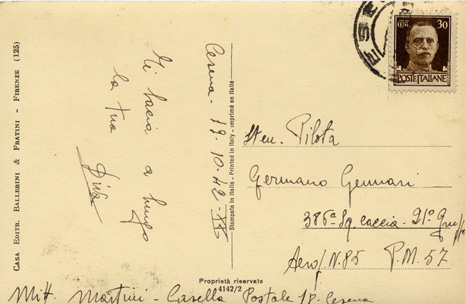 CASA EDITR. BALLERINI & FRATINI - FIRENZE (125)
Cesena - 19.10.42-XX
Ti bacia a lungo
la tua
Diva
Stampata in Italia - Printed in Italy - Imprimé en Italie
30
POSTE ITALIANE
Sten. Pilota
Germano Gennari
386ª Sq. caccia - 21° Gruppo
Aerop. N.85 P.M. 57
Proprietà riservata
4142/2
Mitt. Martini - Casella Postale 18. Cesena